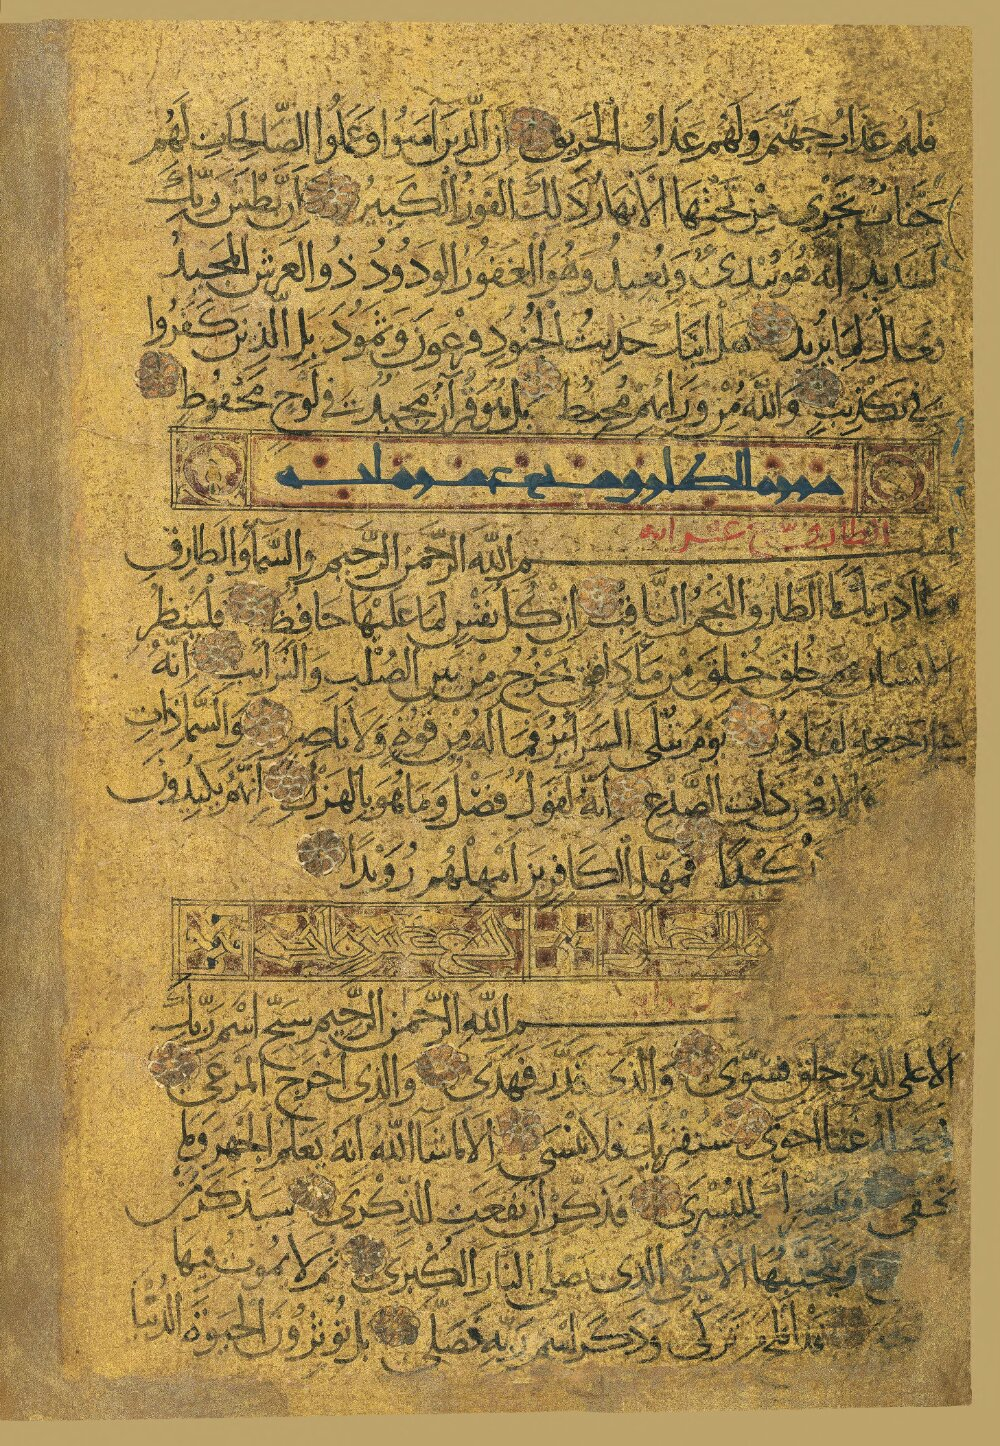 فلهم عذاب جهنم ولهم عذاب الحريق ان الذين آمنوا وعملوا الصالحات لهم
جنات تجري من تحتها الأنهار ذلك الفوز الكبير ان بطش ربك
لشديد انه هو يبدئ ويعيد وهو الغفور الودود ذو العرش المجيد
فعال لما يريد هل اتيك حديث الجنود فرعون وثمود بل الذين كفروا
في تكذيب والله من ورائهم محيط بل هو قرآن مجيد في لوح محفوظ
سورة الطارق سبع عشرة آية
الطارق سبع عشر آية
بسم الله الرحمن الرحيم والسماء والطارق
وما ادريك ما الطارق النجم الثاقب ان كل نفس لما عليها حافظ فلينظر
الانسان مم خلق خلق من ماء دافق يخرج من بين الصلب والترائب انه
على رجعه لقادر يوم تبلى السرائر فما له من قوة ولا ناصر والسماء ذات
والارض ذات الصدع انه لقول فصل وما هو بالهزل انهم يكيدون
واكيد كيدا فمهل الكافرين امهلهم رويدا
بسم الله الرحمن الرحيم سبح اسم ربك
الاعلى الذي خلق فسوى والذي قدر فهدى والذي اخرج المرعى
فجعله غثاء احوى سنقرئك فلا تنسى الا ما شاء الله انه يعلم الجهر وما
يخفى ونيسرك لليسرى فذكر ان نفعت الذكرى سيذكر من
ويتجنبها الاشقى الذي يصلى النار الكبرى ثم لا يموت فيها
قد افلح من تزكى وذكر اسم ربه فصلى بل تؤثرون الحيوة الدنيا